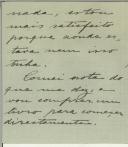 nada, estou
mais satisfeito
porque aonde es-
tava nem isso
tinha.
Comei nota do
que me diz, e
vou comprar um
livro para começar
directamente.